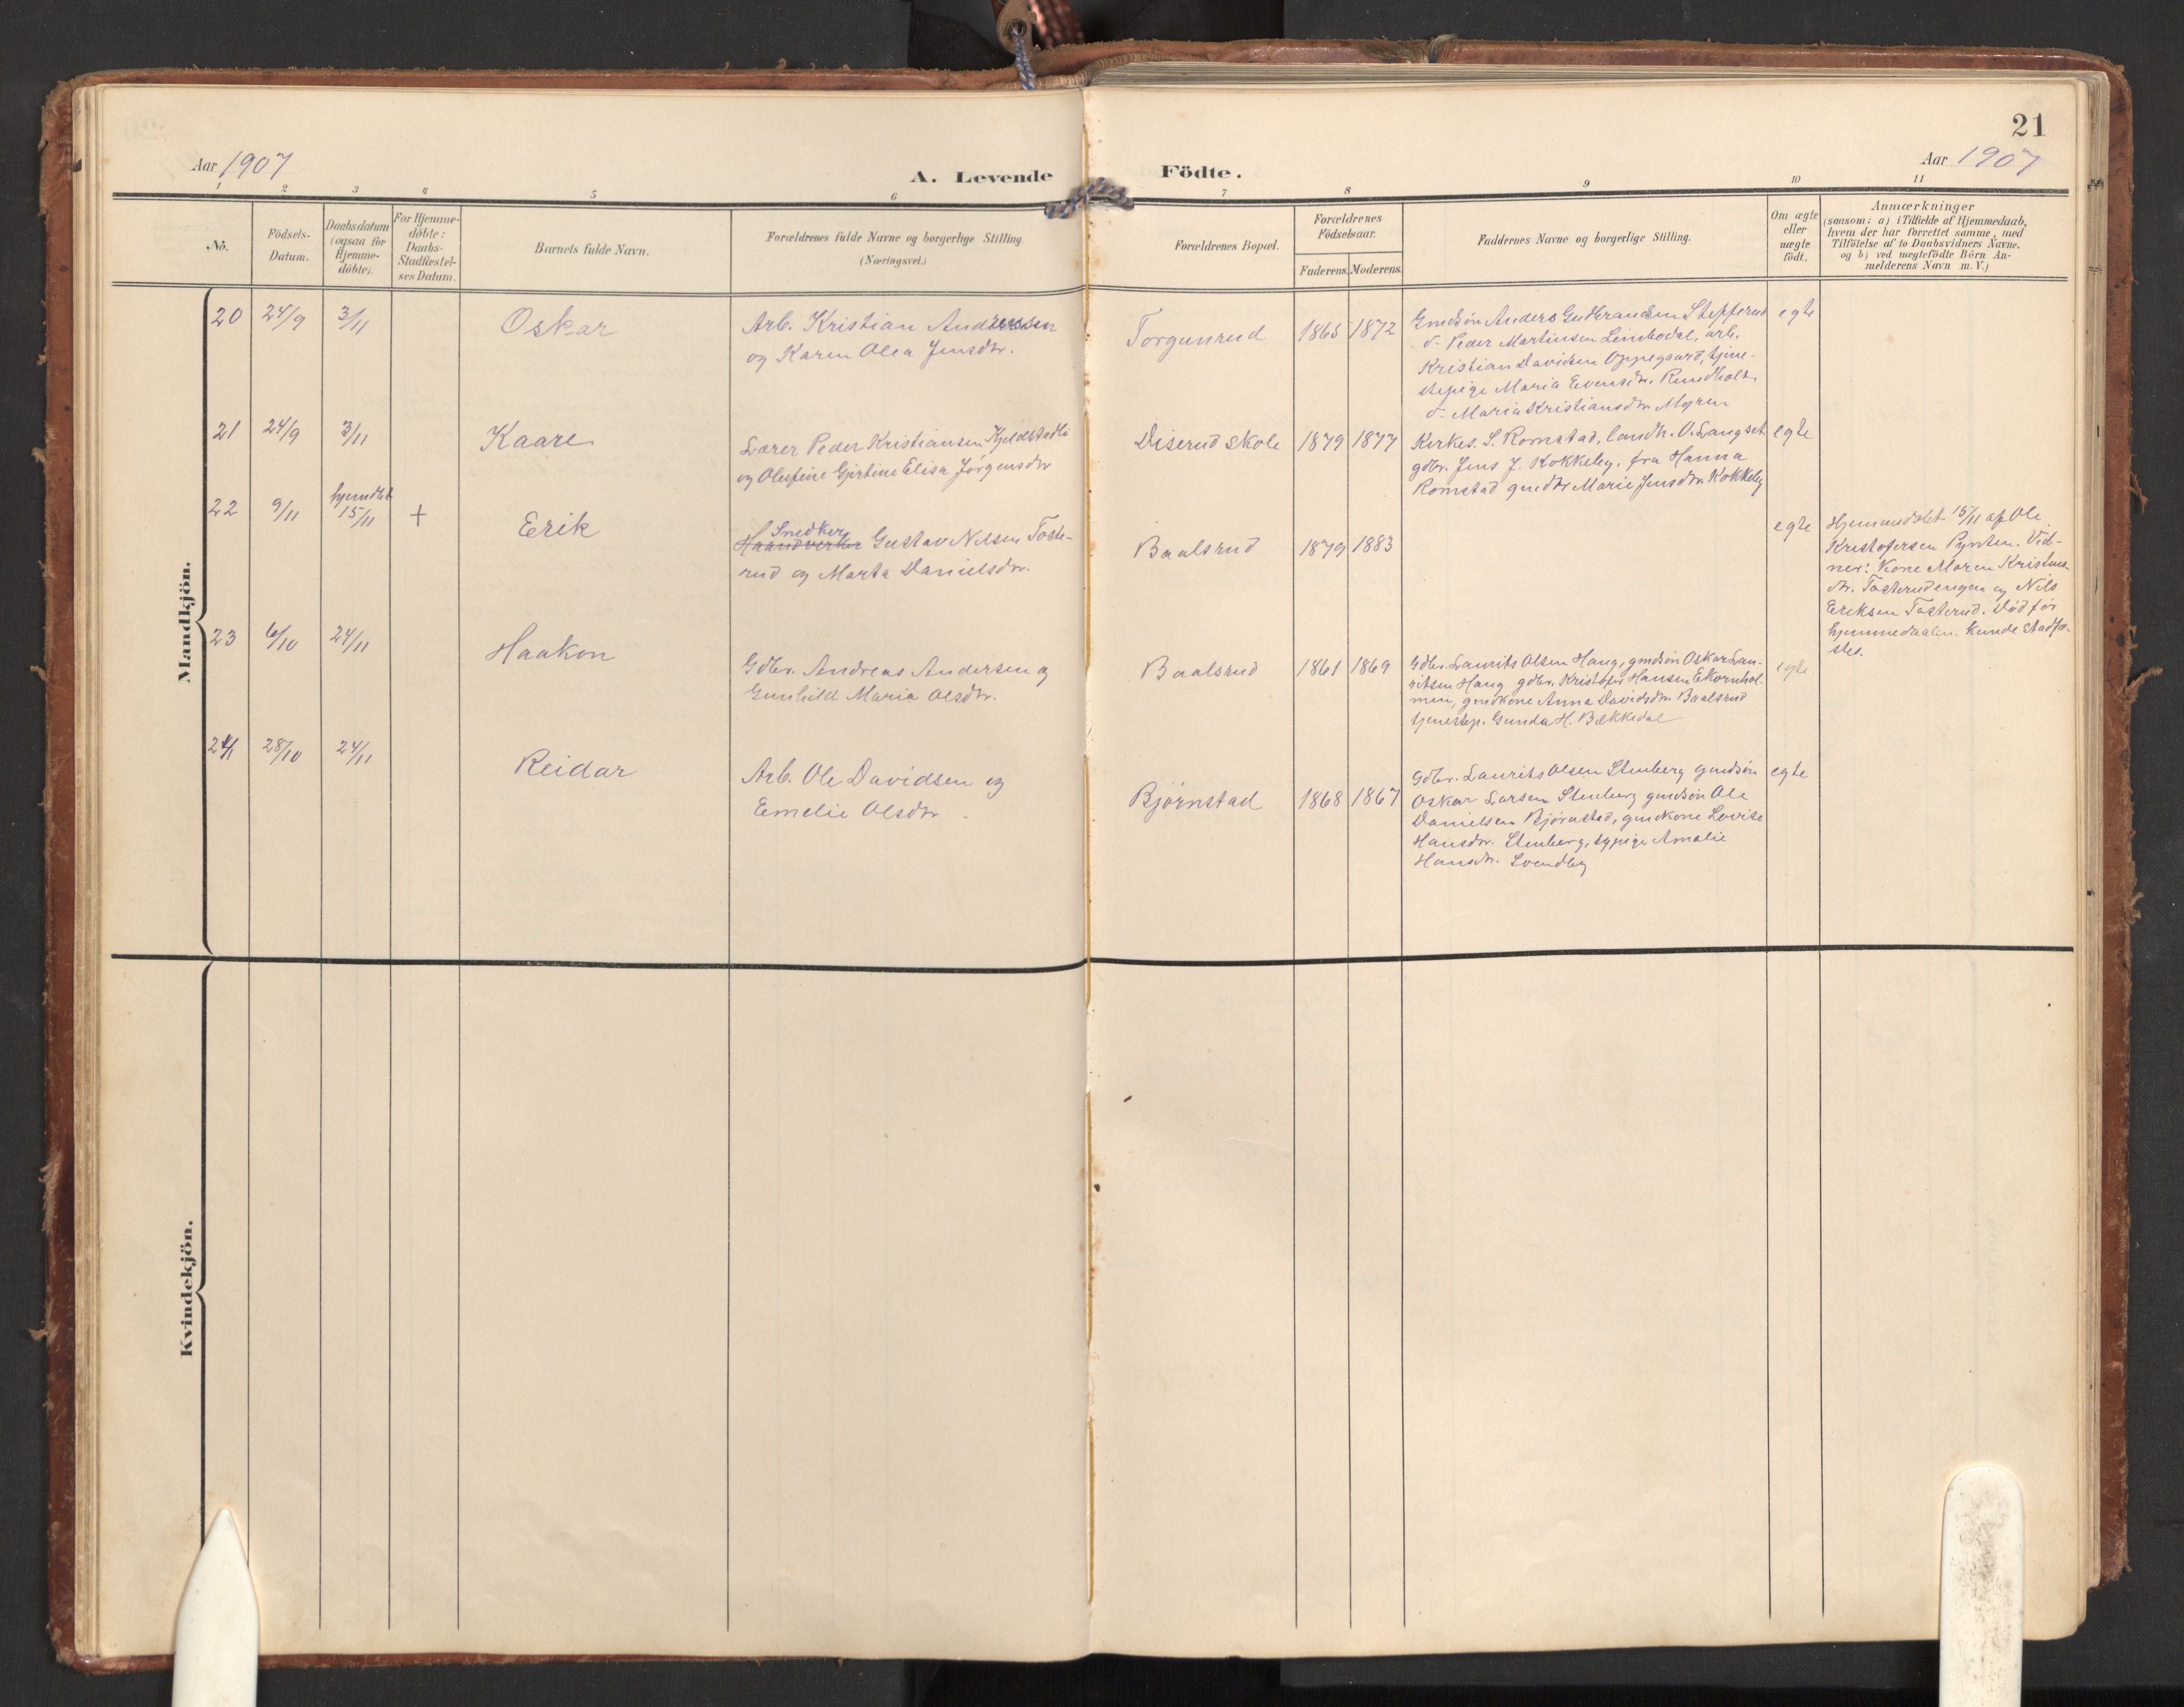 21
Aar 1907
A. Levende Födte.
Aar 1907
1 2 3 4 5 6 7 8 9 10 11
No. Födsels-Datum. Daabsdatum (ogsaa for Hjemme-döbte). For Hjemme-döbte: Daabs-Stadfæstel-ses Datum. Barnets fulde Navn. Forældrenes fulde Navne og borgerlige Stilling. (Næringsvei.) Forældrenes Bopæl. Forældrenes Födselsaar. Faderens. Moderens. Faddernes Navne og borgerlige Stilling. Om ægte eller uægte födt. Anmærkninger (saasom: a) i Tilfælde af Hjemmedaab, hvem der har forrettet samme, med Tilföielse af to Daabsvidners Navne. og b) ved uægtefödte Börn An-melderens Navn m. V.)
Mandkjön.
20 24/9 3/11 Oskar
Arb. Kristian Andreassen
og Karen Olea Jensdtr.
Torgunrud 1865 1872
Gmdsøn Anders Gudbrandsen Stefferud
d. Peder Martinsen Linbodal, arb.
Kristian Davidsen Oppegaard, tjene-
stepige Maria Evensdtr. Rundholt
d. Maria Kristiansdtr. Myren
egte
21 24/9 3/11 Kaare
Lærer Peder Kristiansen Kjeldstadli
og Olufine Gjertine Elisa Jørgensdtr
Diserud skole 1879 1877
Kirkes. S. Romstad, landh. O. Langset
gdbr. Jens J. Kokkeby, fru Hanna
Romstad gmdtr Marie Jensdtr. Kokkeby
egte
22 9/11 hjemdbt 15/11 + Erik
Snedker
Haandverker Gustav Nilsen Toste-
rud og Marta Danielsdtr.
Baalsrud 1879 1883
egte
Hjemmedøbt 15/11 af Ole
Kristofersen Pynten. Vid-
ner: Kone Maren Kristens-
dtr. Tosterudengen og Nils
Eriksen Tosterud. Død før
hjemmedaaben kunde stadfæ-
stes.
23 6/10 24/11 Haakon
Gdbr. Andreas Andersen og
Gunhild Maria Olsdtr.
Baalsrud 1861 1869
Gdbr. Laurits Olsen Haug, gmdsøn Oskar Lau-
ritsen Haug gdbr. Kristofer Hansen Ekornhol-
men, gmdkone Anna Davidsdtr. Baalsrud
tjenestep. Gunda H. Bækkedal
egte
24 28/10 24/11 Reidar
Arb. Ole Davidsen og
Emelie Olsdtr.
Bjørnstad 1868 1867
Gdbr. Laurits Olsen Stenberg gmdsøn
Oskar Larsen Stenberg gmdsøn Ole
Danielsen Bjørnstad, gmdkone Lovise
Hansdtr. Stenberg, sypige Amalie
Hansdtr. Svendby
egte
Kvindekjön.